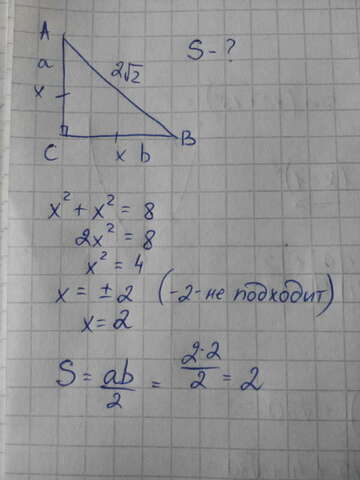 A
a
2√2
S - ?
x
C
x b
B
x² + x² = 8
2x² = 8
x² = 4
x = ± 2 (-2 - не подходит)
x = 2
S = ab/2 = 2·2/2 = 2